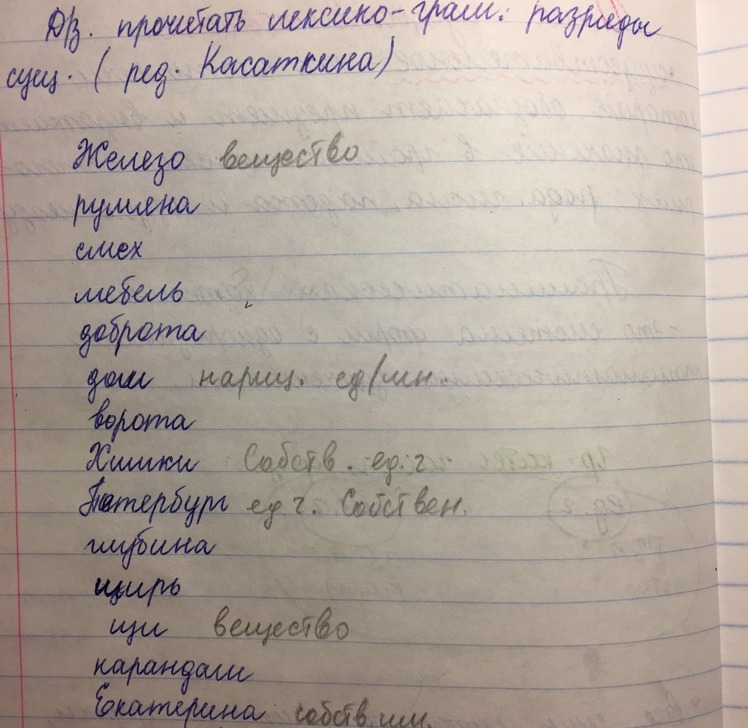 Д/З. прочитать лексико-грам. разряды
сущ. (ред. Касаткина)
Железо вещество
румяна
смех
мебель
доброта
дом нариц. ед/мн.
ворота
Химки Собств. ед. г
Петербург ед. г. Собствен.
глубина
ширь
щи вещество
карандаш
Екатерина собств. им.